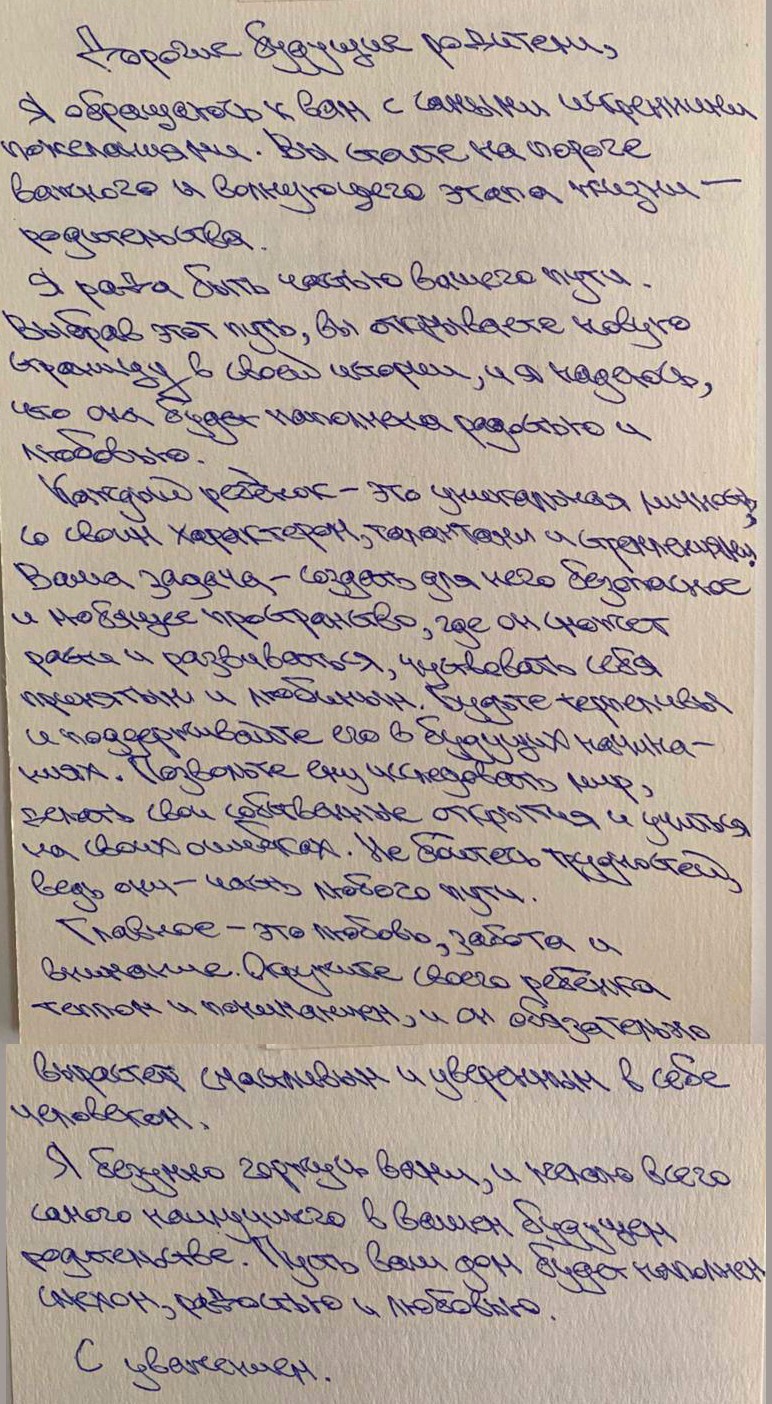 Дорогие будущие родители,
Я обращаюсь к вам с самыми искренними
пожеланиями. Вы стоите на пороге
важного и волнующего этапа жизни —
родительства.
Я рада быть частью вашего пути.
Выбрав этот путь, вы открываете новую
страницу в своей истории, и я надеюсь,
что она будет наполнена радостью и
любовью.
Каждый ребёнок — это уникальная личность,
со своим характером, талантами и стремлениями.
Ваша задача — создать для него безопасное
и любящее пространство, где он сможет
расти и развиваться, чуствовать себя
принятым и любимым. Будьте терпеливы
и поддерживайте его в будущих начина-
ниях. Позвольте ему исследовать мир,
делать свои собственные открытия и учиться
на своих ошибках. Не бойтесь трудностей,
ведь они — часть любого пути.
Главное — это любовь, забота и
внимание. Окружите своего ребёнка
теплом и пониманием, и он обязательно
вырастет счастливым и уверенным в себе
человеком.
Я безумно горжусь вами, и желаю всего
самого наилучшего в вашем будущем
родительстве. Пусть ваш дом будет наполнен
смехом, радостью и любовью.
С уважением.